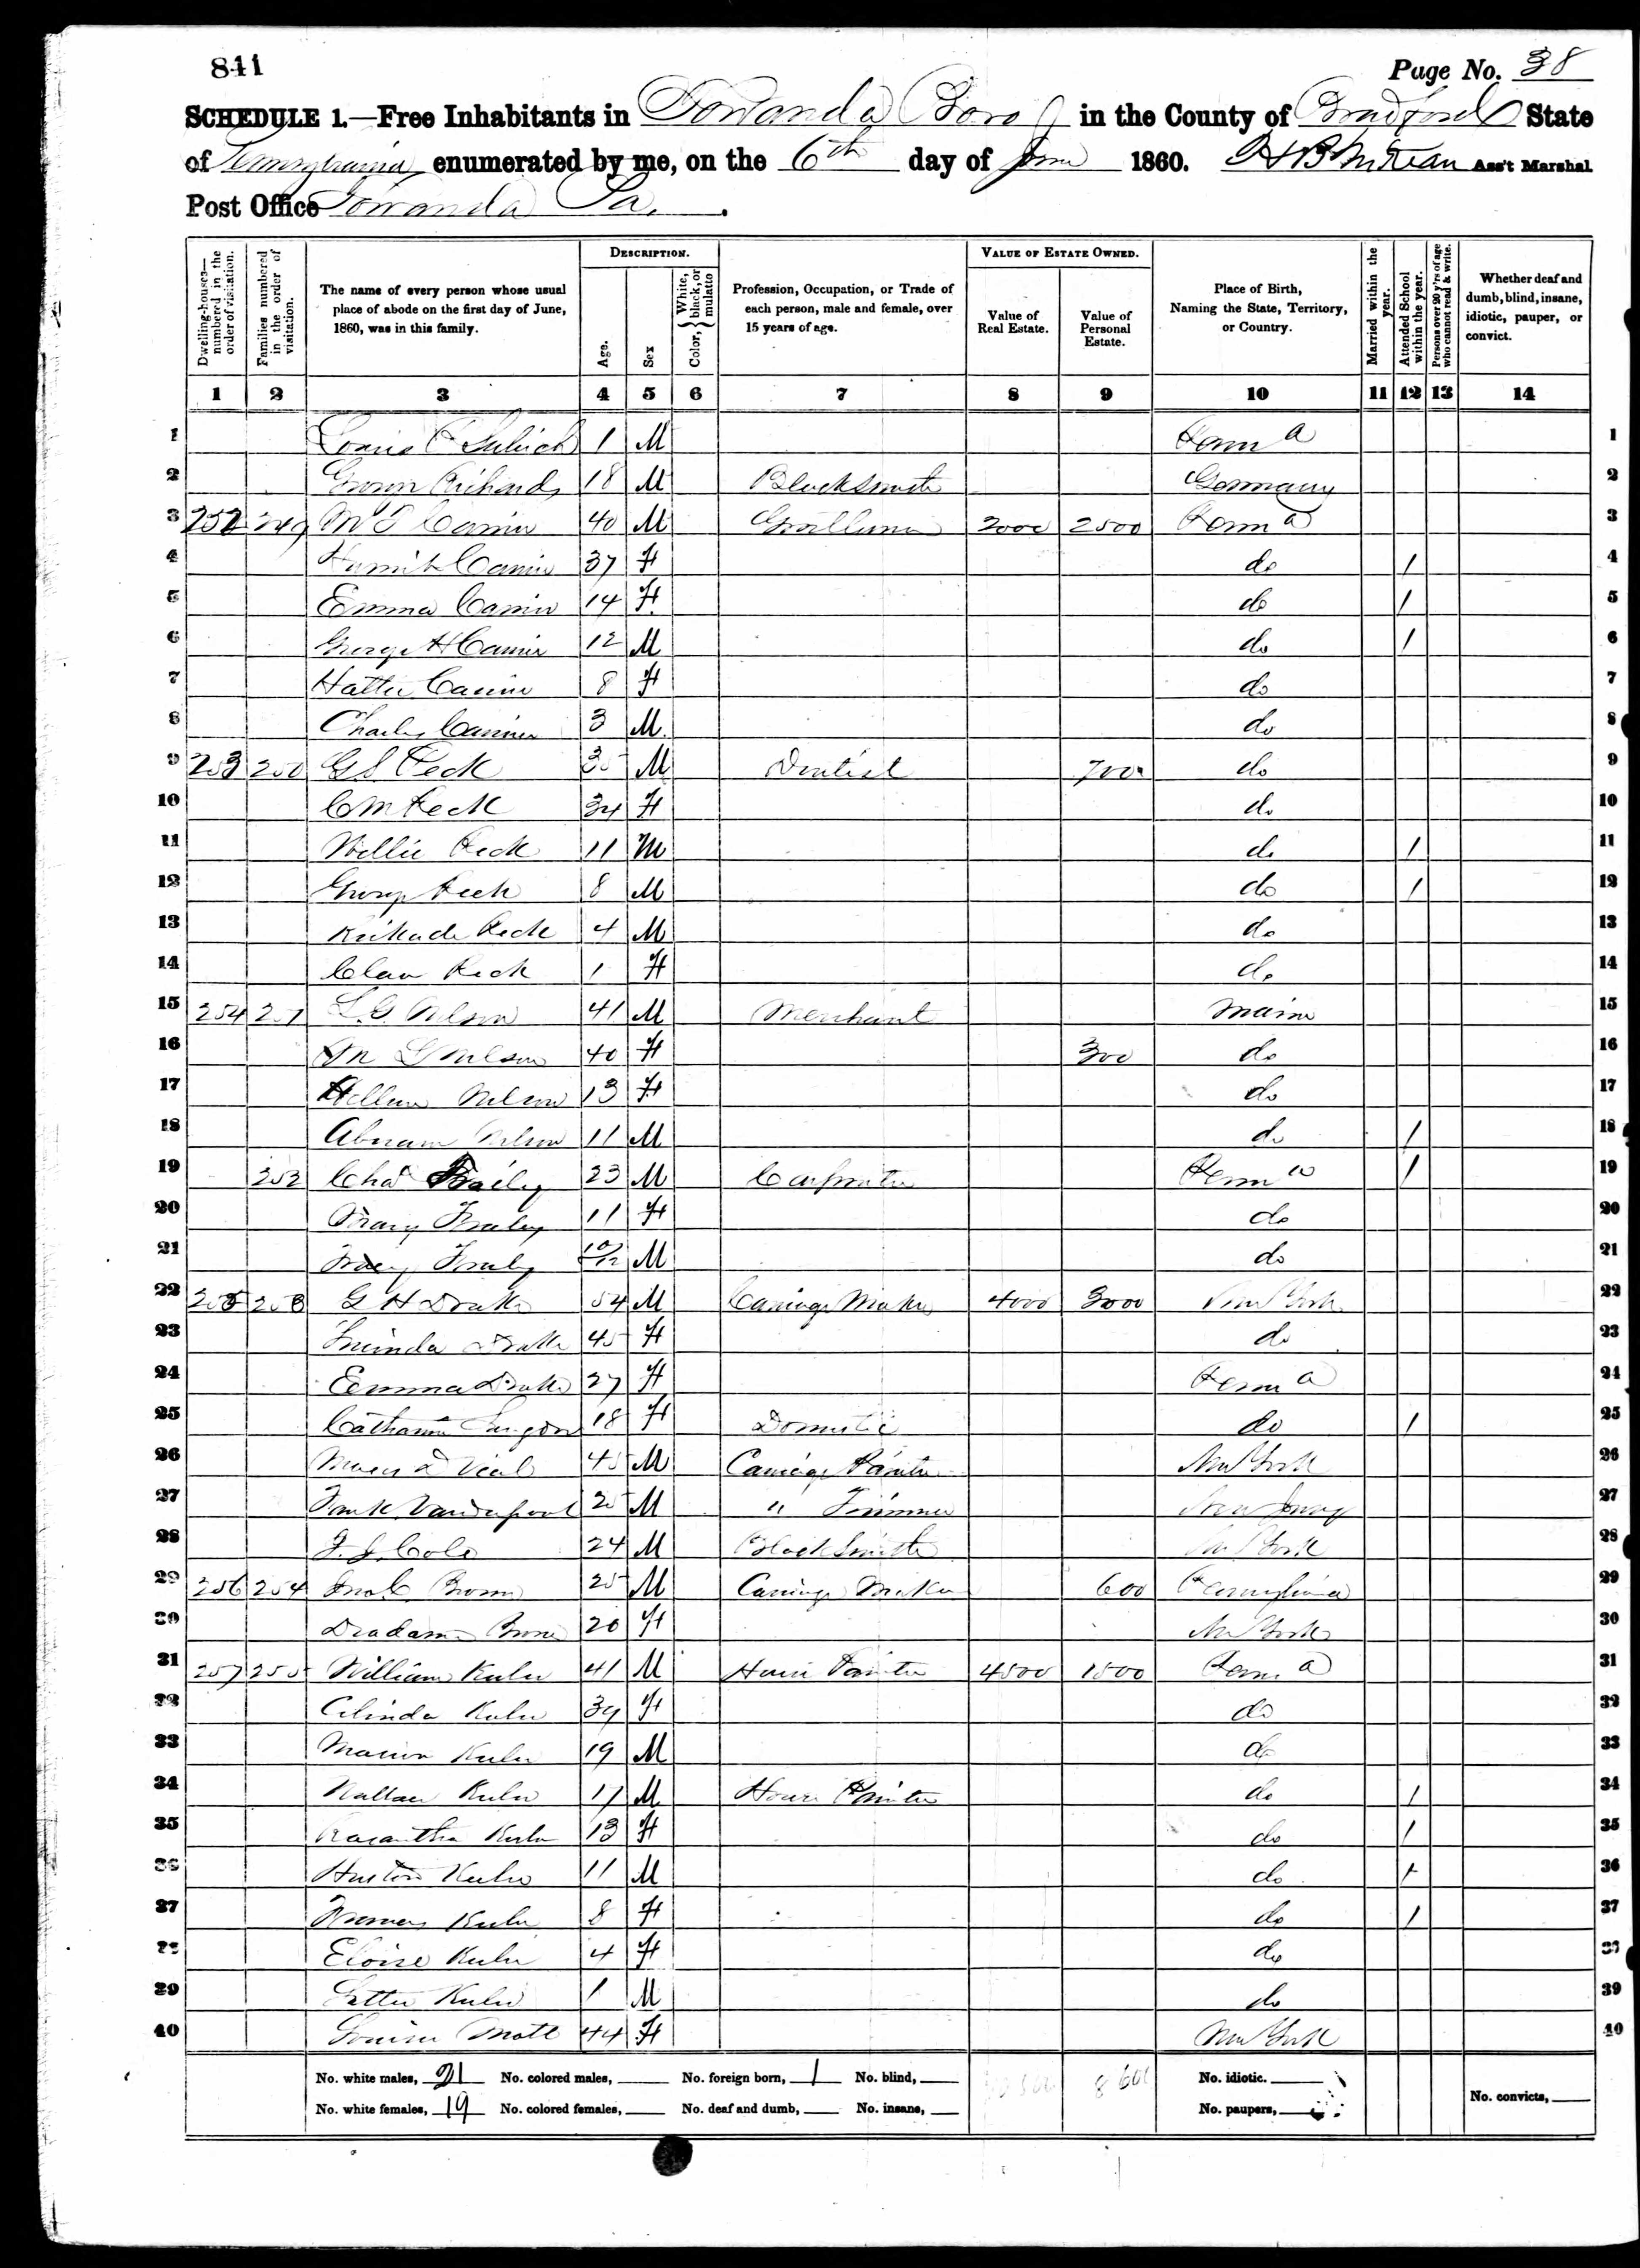 841
Page No. 38
SCHEDULE 1.—Free Inhabitants in Towanda Boro in the County of Bradford State
of Pennsylvania enumerated by me, on the 6th day of June 1860. H B McKean Ass't Marshal.
Post Office Towanda Pa.
Dwelling-houses—numbered in the order of visitation.
Families numbered in the order of visitation.
The name of every person whose usual place of abode on the first day of June, 1860, was in this family.
DESCRIPTION.
Age.
Sex
Color, { White, black, or mulatto
Profession, Occupation, or Trade of each person, male and female, over 15 years of age.
VALUE OF ESTATE OWNED.
Value of Real Estate.
Value of Personal Estate.
Place of Birth, Naming the State, Territory, or Country.
Married within the year.
Attended School within the year.
Persons over 20 y'rs of age who cannot read & write.
Whether deaf and dumb, blind, insane, idiotic, pauper, or convict.
1 2 3 4 5 6 7 8 9 10 11 12 13 14
1 1 M Penn a 1
2 Richards 18 M Blacksmith Germany 2
3 252 249 40 M Gentleman 2000 2500 Penn a 3
4 37 F do / 4
5 Emma 14 F do / 5
6 George H 12 M do / 6
7 Hattie 8 F do 7
8 Charles 3 M do 8
9 253 250 G S Peck 35 M Dentist 700 do 9
10 C M Peck 34 F do 10
11 Willie Peck 11 M do / 11
12 George Peck 8 M do / 12
13 Peck 4 M do 13
14 Clara Peck 1 F do 14
15 254 251 L. G. Nelson 41 M Merchant Maine 15
16 Nelson 40 F 300 do 16
17 Hellen Nelson 13 F do 17
18 Abram Nelson 11 M do / 18
19 252 Chas 23 M Carpenter Penn a / 19
20 Mary 11 F do 20
21 10/12 M do 21
22 255 253 G H Drake 54 M Carriage Maker 4000 3000 New York 22
23 Lucinda Drake 45 F do 23
24 Emma Drake 27 F Penn a 24
25 Catharine 18 F Domestic do / 25
26 45 M Carriage Painter New York 26
27 Frank Vanderpool 25 M " Trimmer New Jersey 27
28 F. J. Cole 24 M Blacksmith New York 28
29 256 254 Jno C Brown 25 M Carriage Maker 600 Pennsylvania 29
30 20 F New York 30
31 257 255 William Kuler 41 M House Painter 4500 1500 Penn a 31
32 Celinda Kuler 39 F do 32
33 Marion Kuler 19 M do 33
34 Wallace Kuler 17 M House Painter do / 34
35 Kuler 13 F do / 35
36 Huston Kuler 11 M do / 36
37 Frances Kuler 8 F do / 37
38 Eloise Kuler 4 F do 38
39 Kuler 1 M do 39
40 Louisa Mott 44 F New York 40
No. white males, 21 No. colored males, No. foreign born, 1 No. blind, 8600 No. idiotic.
No. white females, 19 No. colored females, No. deaf and dumb, No. insane, No. paupers, No. convicts,